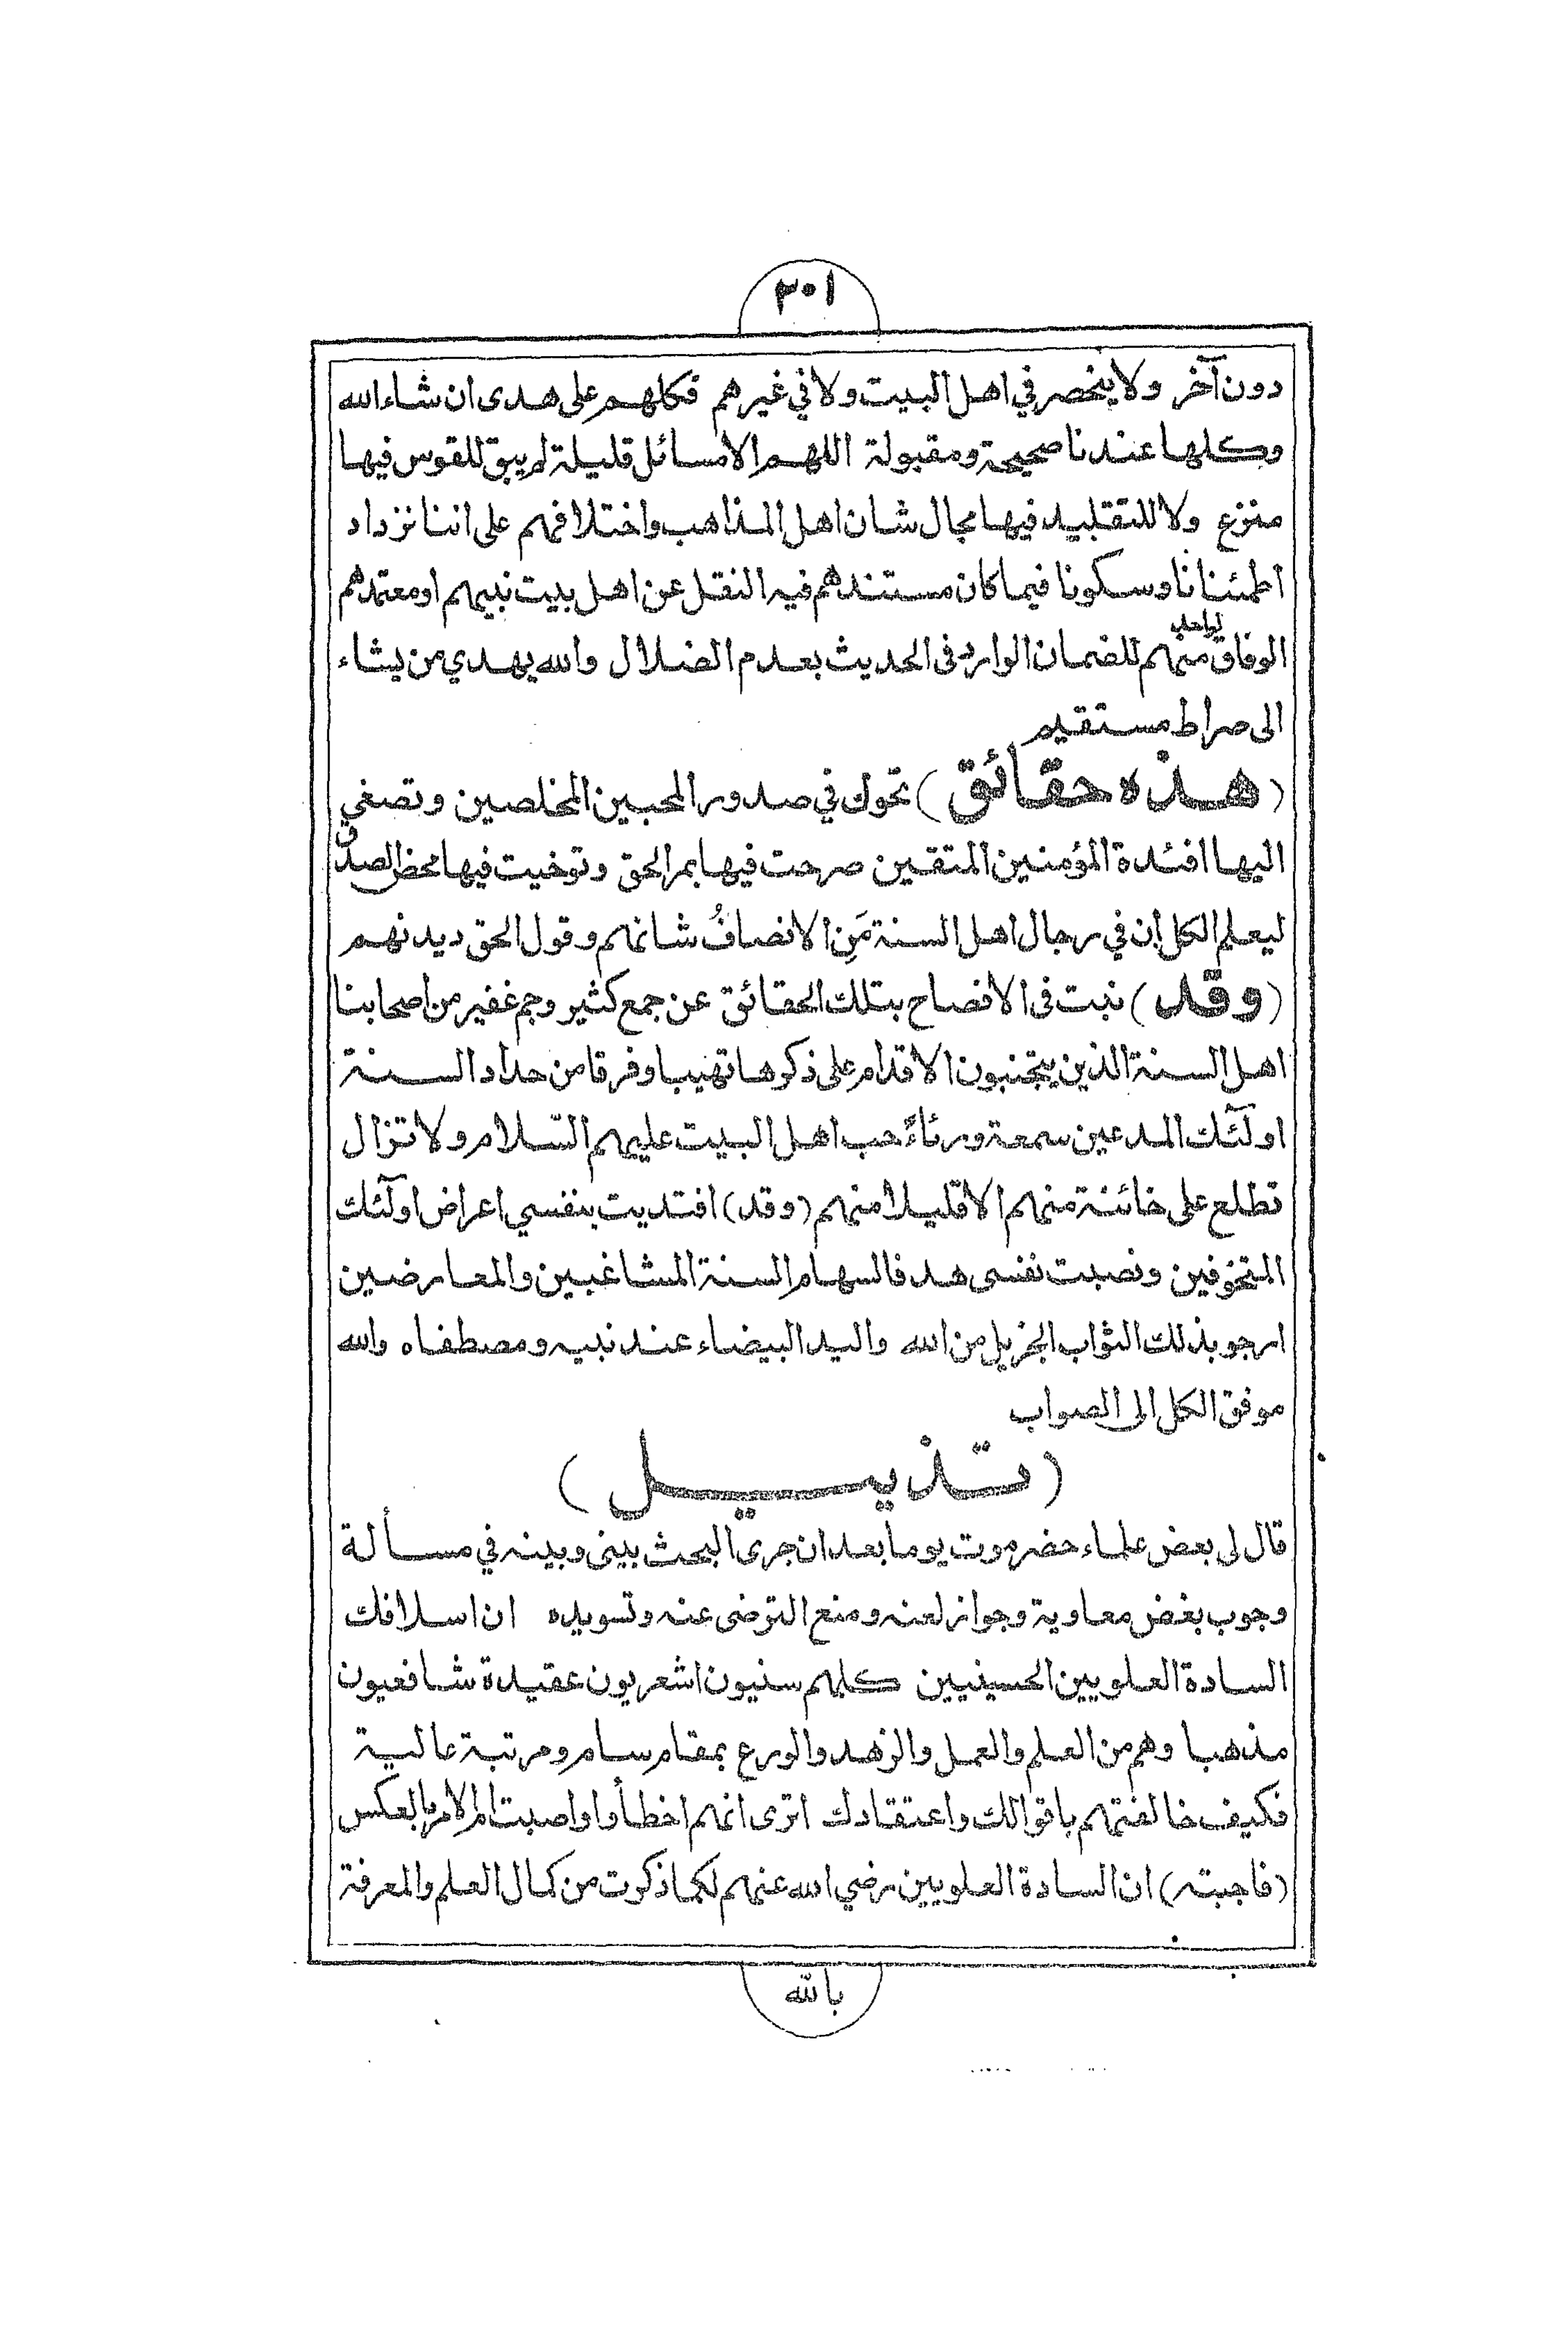 ٣٠١
دون آخر ولا ينحصر في اهل البيت ولا في غيرهم فكلهم على هدى ان شاء الله
وكلها عندنا صحيحة ومقبولة اللهم الا مسائل قليلة لم يبق للقوس فيها
منزع ولا للتقليد فيها مجال شان اهل المذاهب واختلافهم على اننا نزداد
اطمئنانا وسكونا فيما كان مستندهم فيه النقل عن اهل بيت نبيهم او معتمدهم
الوفاق لواحد منهم للضمان الوارد في الحديث بعدم الضلال والله يهدي من يشاء
الى صراط مستقيم
(هذه حقائق) تحوك في صدور المحبين المخلصين وتصغي
اليها افئدة المؤمنين المتقين صرحت فيها بمر الحق وتوخيت فيها محض الصدق
ليعلم الكل إن في رجال اهل السنة مَنِ الانصافُ شانهم وقول الحق ديدنهم
(وقد) نبت في الافصاح بتلك الحقائق عن جمع كثير وجم غفير من اصحابنا
اهل السنة الذين يتجنبون الاقدام على ذكرها تهيبا وفرقا من حداد السنة
اولٓئك المدعين سمعة ورئاءً حب اهل البيت عليهم السّلام ولا تزال
تطلع على خائنة منهم الا قليلا منهم (وقد) افتديت بنفسي اعراض اولٓئك
المتخوفين ونصبت نفسى هدفا لسهام السنة المشاغبين والمعارضين
ارجو بذلك الثواب الجزيل من الله واليد البيضاء عند نبيه ومصطفاه والله
موفق الكل الى الصواب
(تذييل)
قال لى بعض علماء حضرموت يوما بعد ان جرى البحث بينى وبينه في مسألة
وجوب بغض معاوية وجواز لعنه ومنع الترضى عنه وتسويده ان اسلافك
السادة العلويين الحسينيين كلهم سنيون اشعريون عقيدة شافعيون
مذهبا وهم من العلم والعمل والزهد والورع بمقام سام ومرتبة عالية
فكيف خالفتهم باقوالك واعتقادك اترى انهم اخطأوا واصبت ام الامر بالعكس
(فاجبته) ان السادة العلويين رضي الله عنهم لكما ذكرت من كمال العلم والمعرفة
بالله